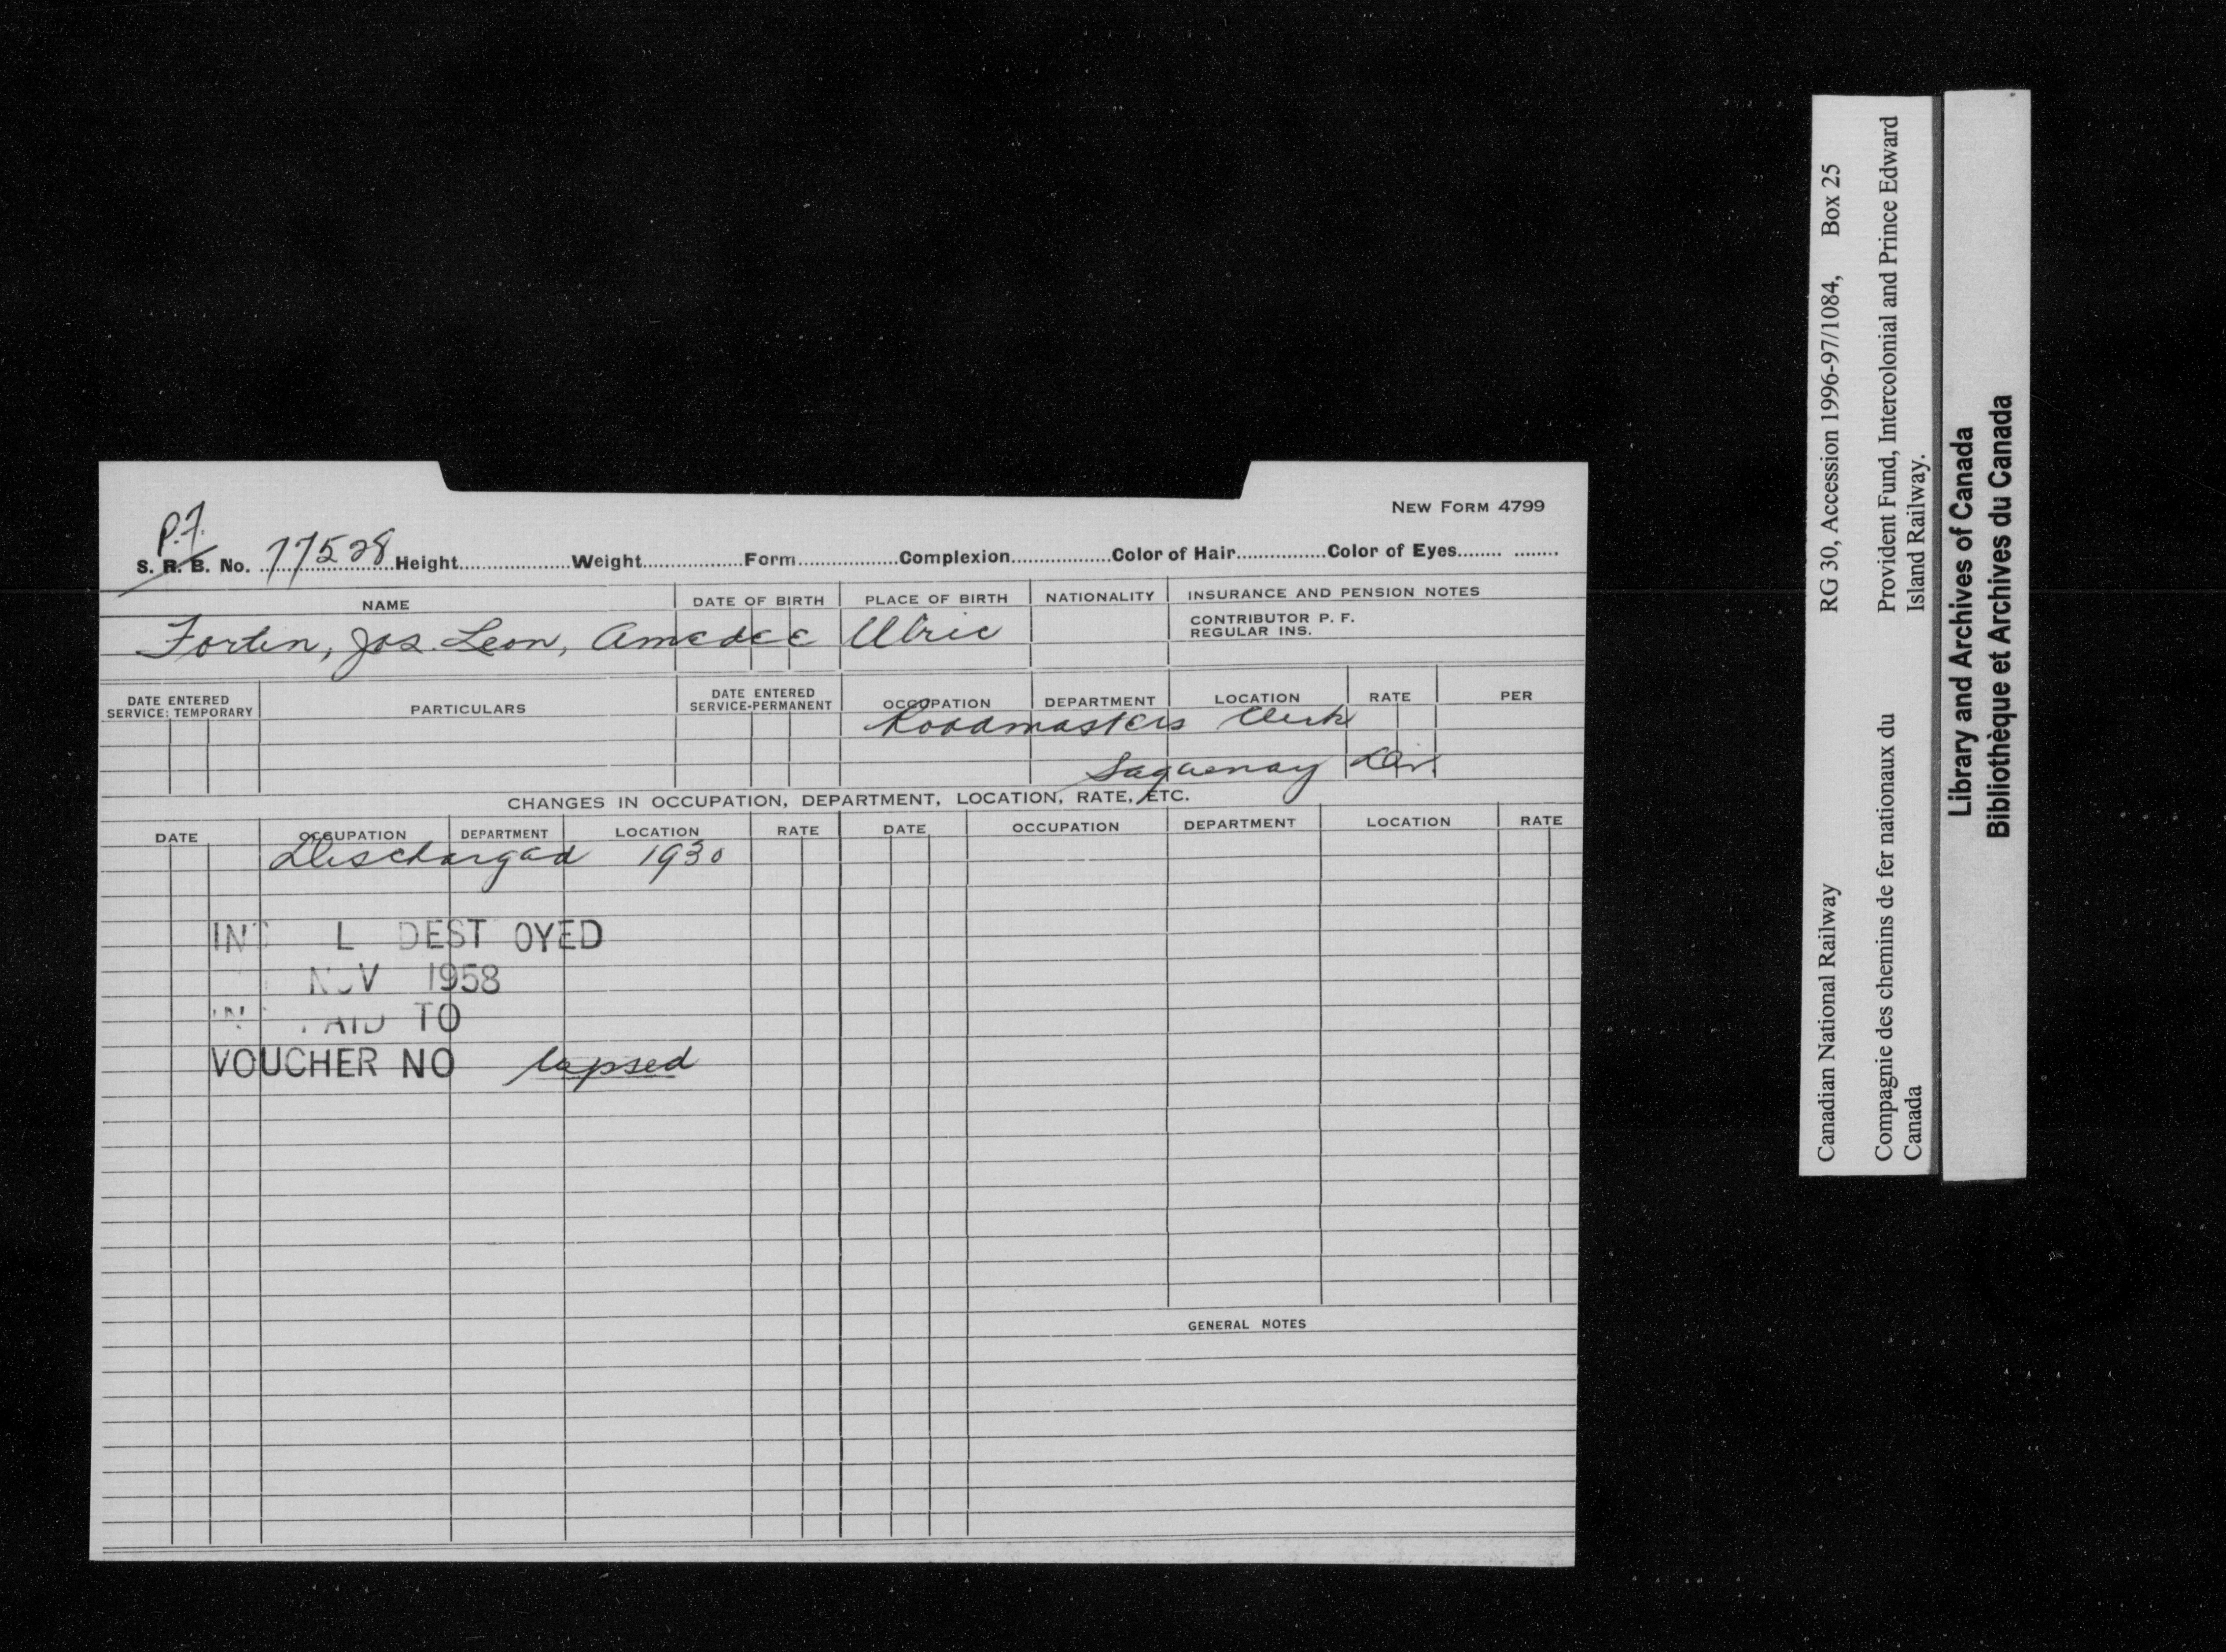 NEW FORM 4799
P.F.
S. R. B. No. 77528 Height Weight Form Complexion Color of Hair Color of Eyes
NAME DATE OF BIRTH PLACE OF BIRTH NATIONALITY INSURANCE AND PENSION NOTES
CONTRIBUTOR P. F.
REGULAR INS.
Fortin, Jos. Leon, Amedee Ulric
DATE ENTERED SERVICE: TEMPORARY PARTICULARS DATE ENTERED SERVICE-PERMANENT OCCUPATION DEPARTMENT LOCATION RATE PER
Roadmasters Clerk
Saguenay Div
CHANGES IN OCCUPATION, DEPARTMENT, LOCATION, RATE, ETC.
DATE OCCUPATION DEPARTMENT LOCATION RATE DATE OCCUPATION DEPARTMENT LOCATION RATE
Discharged 1930
L DEST OYED
NOV 1958
PAID TO
VOUCHER NO lapsed
GENERAL NOTES
Canadian National Railway RG 30, Accession 1996-97/1084, Box 25
Compagnie des chemins de fer nationaux du Provident Fund, Intercolonial and Prince Edward
Canada Island Railway.
Library and Archives of Canada
Bibliothèque et Archives du Canada